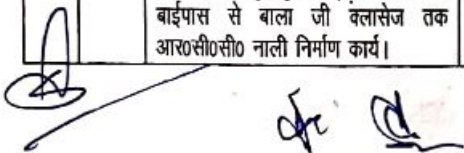 बाईपास से बाला जी क्लासेज तक
आर०सी०सी० नाली निर्माण कार्य।